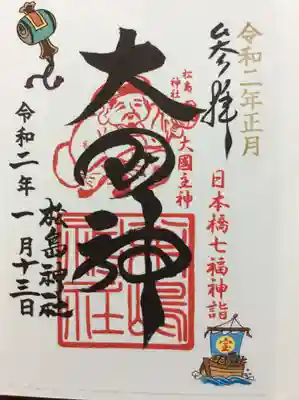 令和二年正月
参拝
日本橋七福神詣
松島神社
大國主神
大国神
松島神社
令和二年一月十三日
宝
松嶋神社